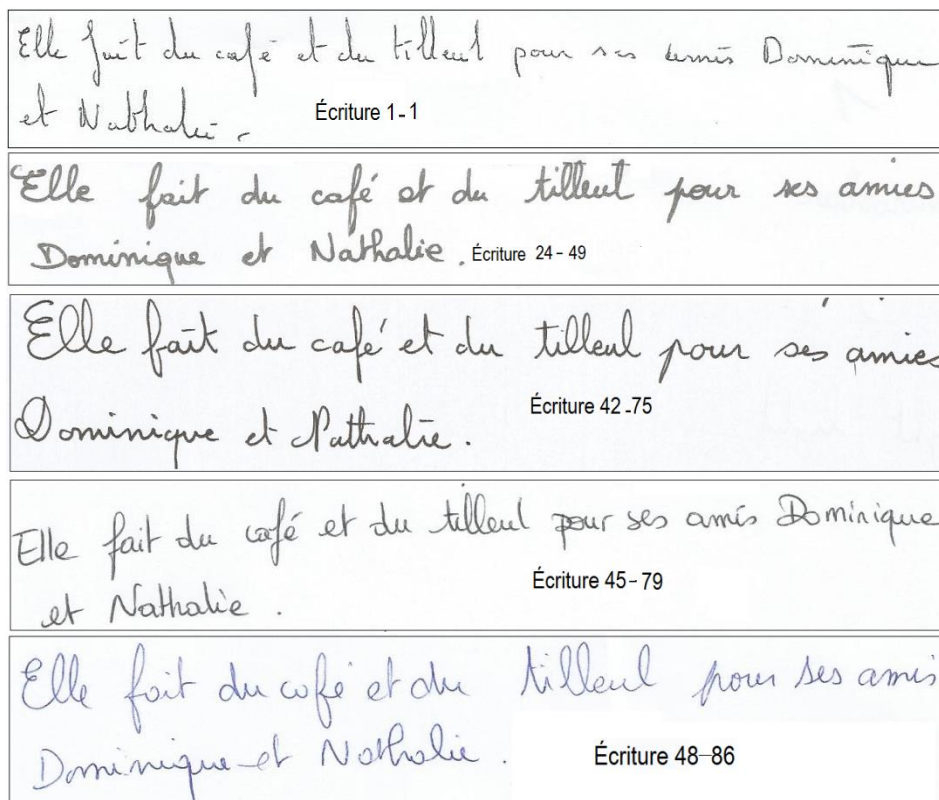 Elle fait du café et du tilleul pour ses amis Dominique
et Nathalie.
Écriture 1-1
Elle fait du café et du tilleul pour ses amies
Dominique et Nathalie. Écriture 24-49
Elle fait du café et du tilleul pour ses amies
Dominique et Nathalie.
Écriture 42-75
Elle fait du café et du tilleul pour ses amis Dominique
et Nathalie.
Écriture 45-79
Elle fait du café et du tilleul pour ses amis
Dominique et Nathalie.
Écriture 48-86